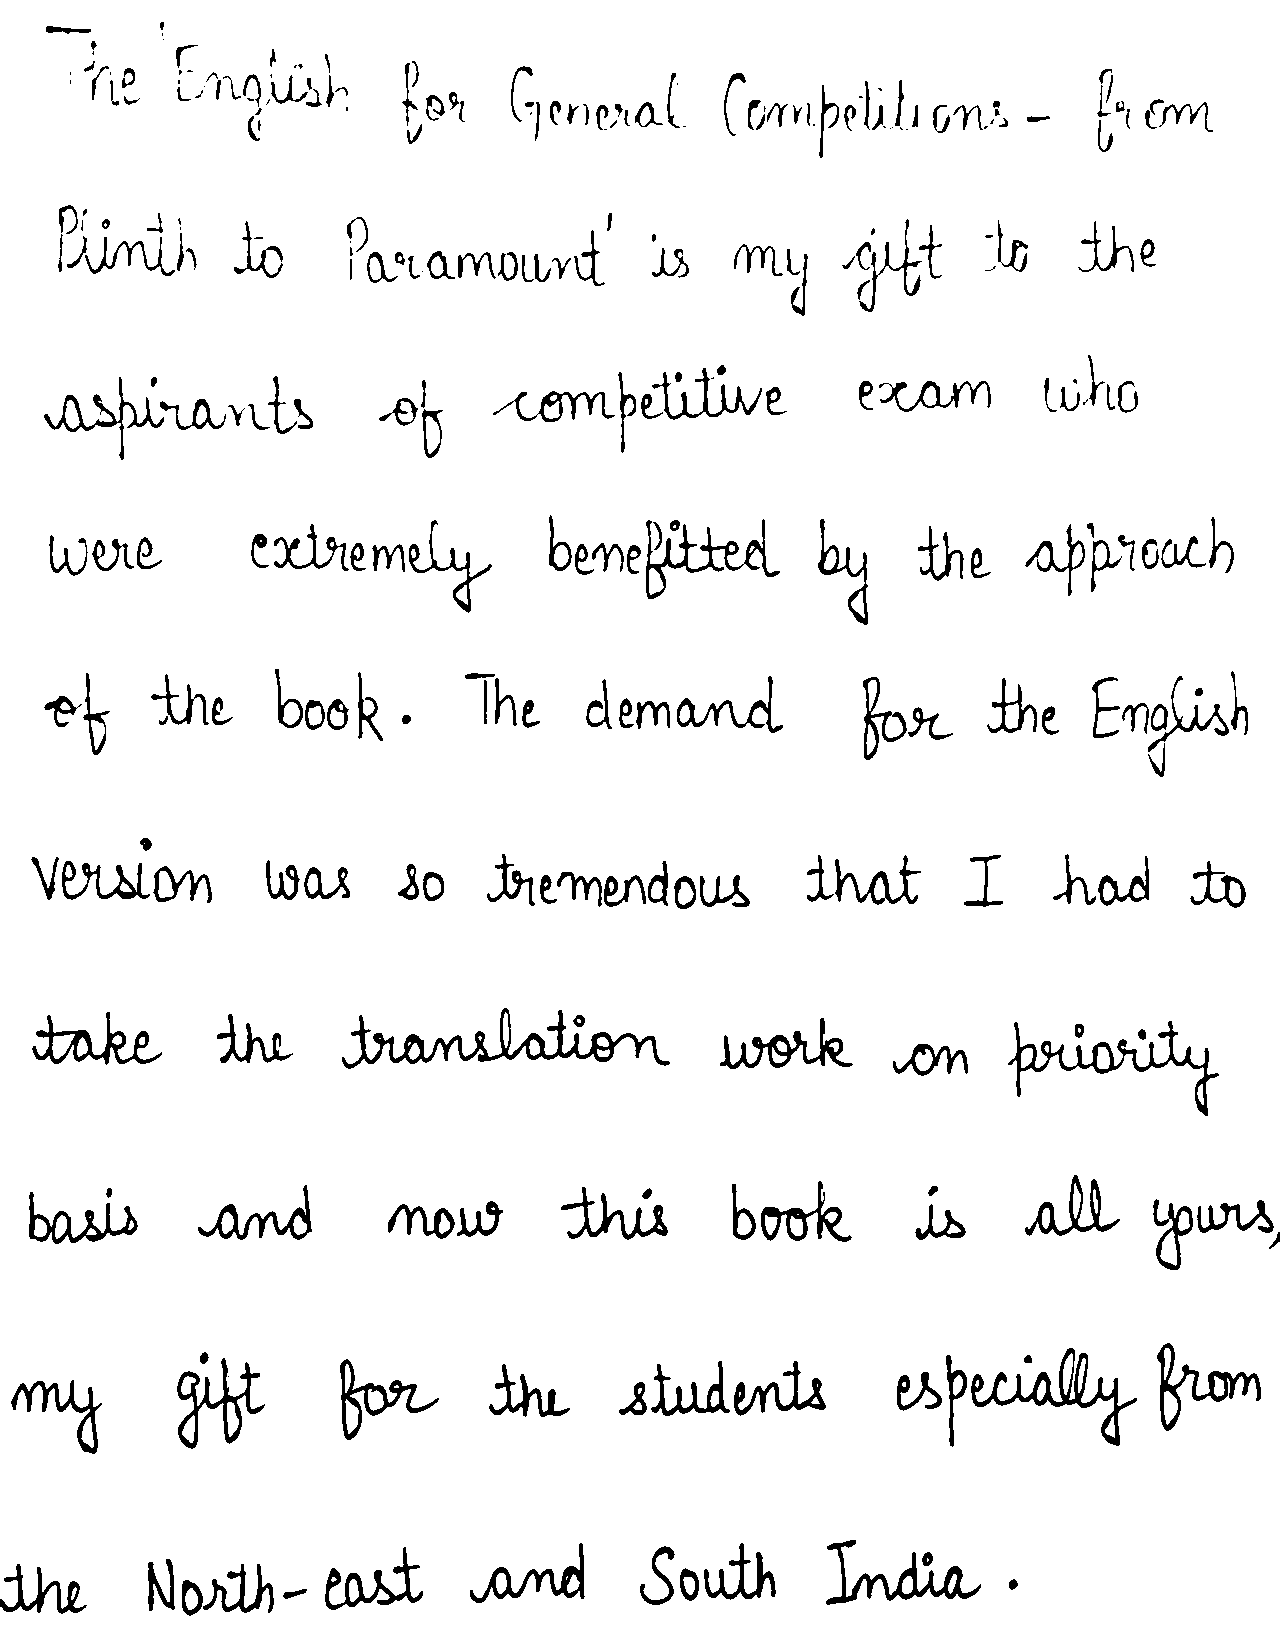 The 'English for General Competitions - from
Plinth to Paramount' is my gift to the
aspirants of competitive exam who
were extremely benefitted by the approach
of the book. The demand for the English
version was so tremendous that I had to
take the translation work on priority
basis and now this book is all yours,
my gift for the students especially from
the North-east and South India.